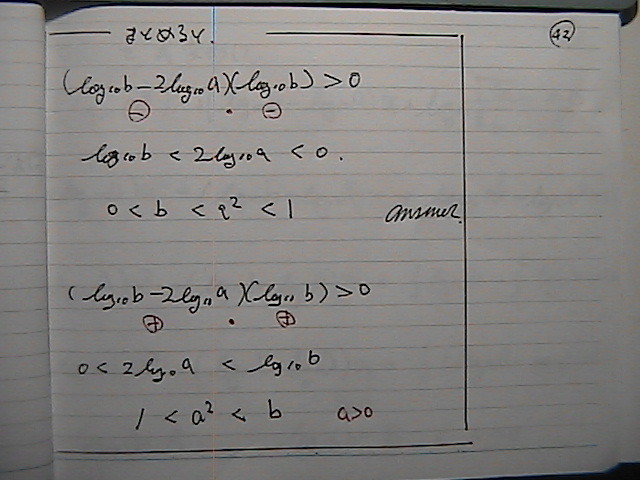 42
(log₁₀b - 2log₁₀a)(log₁₀b) > 0
⊖ · ⊖
log₁₀b < 2log₁₀a < 0.
0 < b < a² < 1 answer.
(log₁₀b - 2log₁₀a)(log₁₀b) > 0
⊕ · ⊕
0 < 2log₁₀a < log₁₀b
1 < a² < b a>0